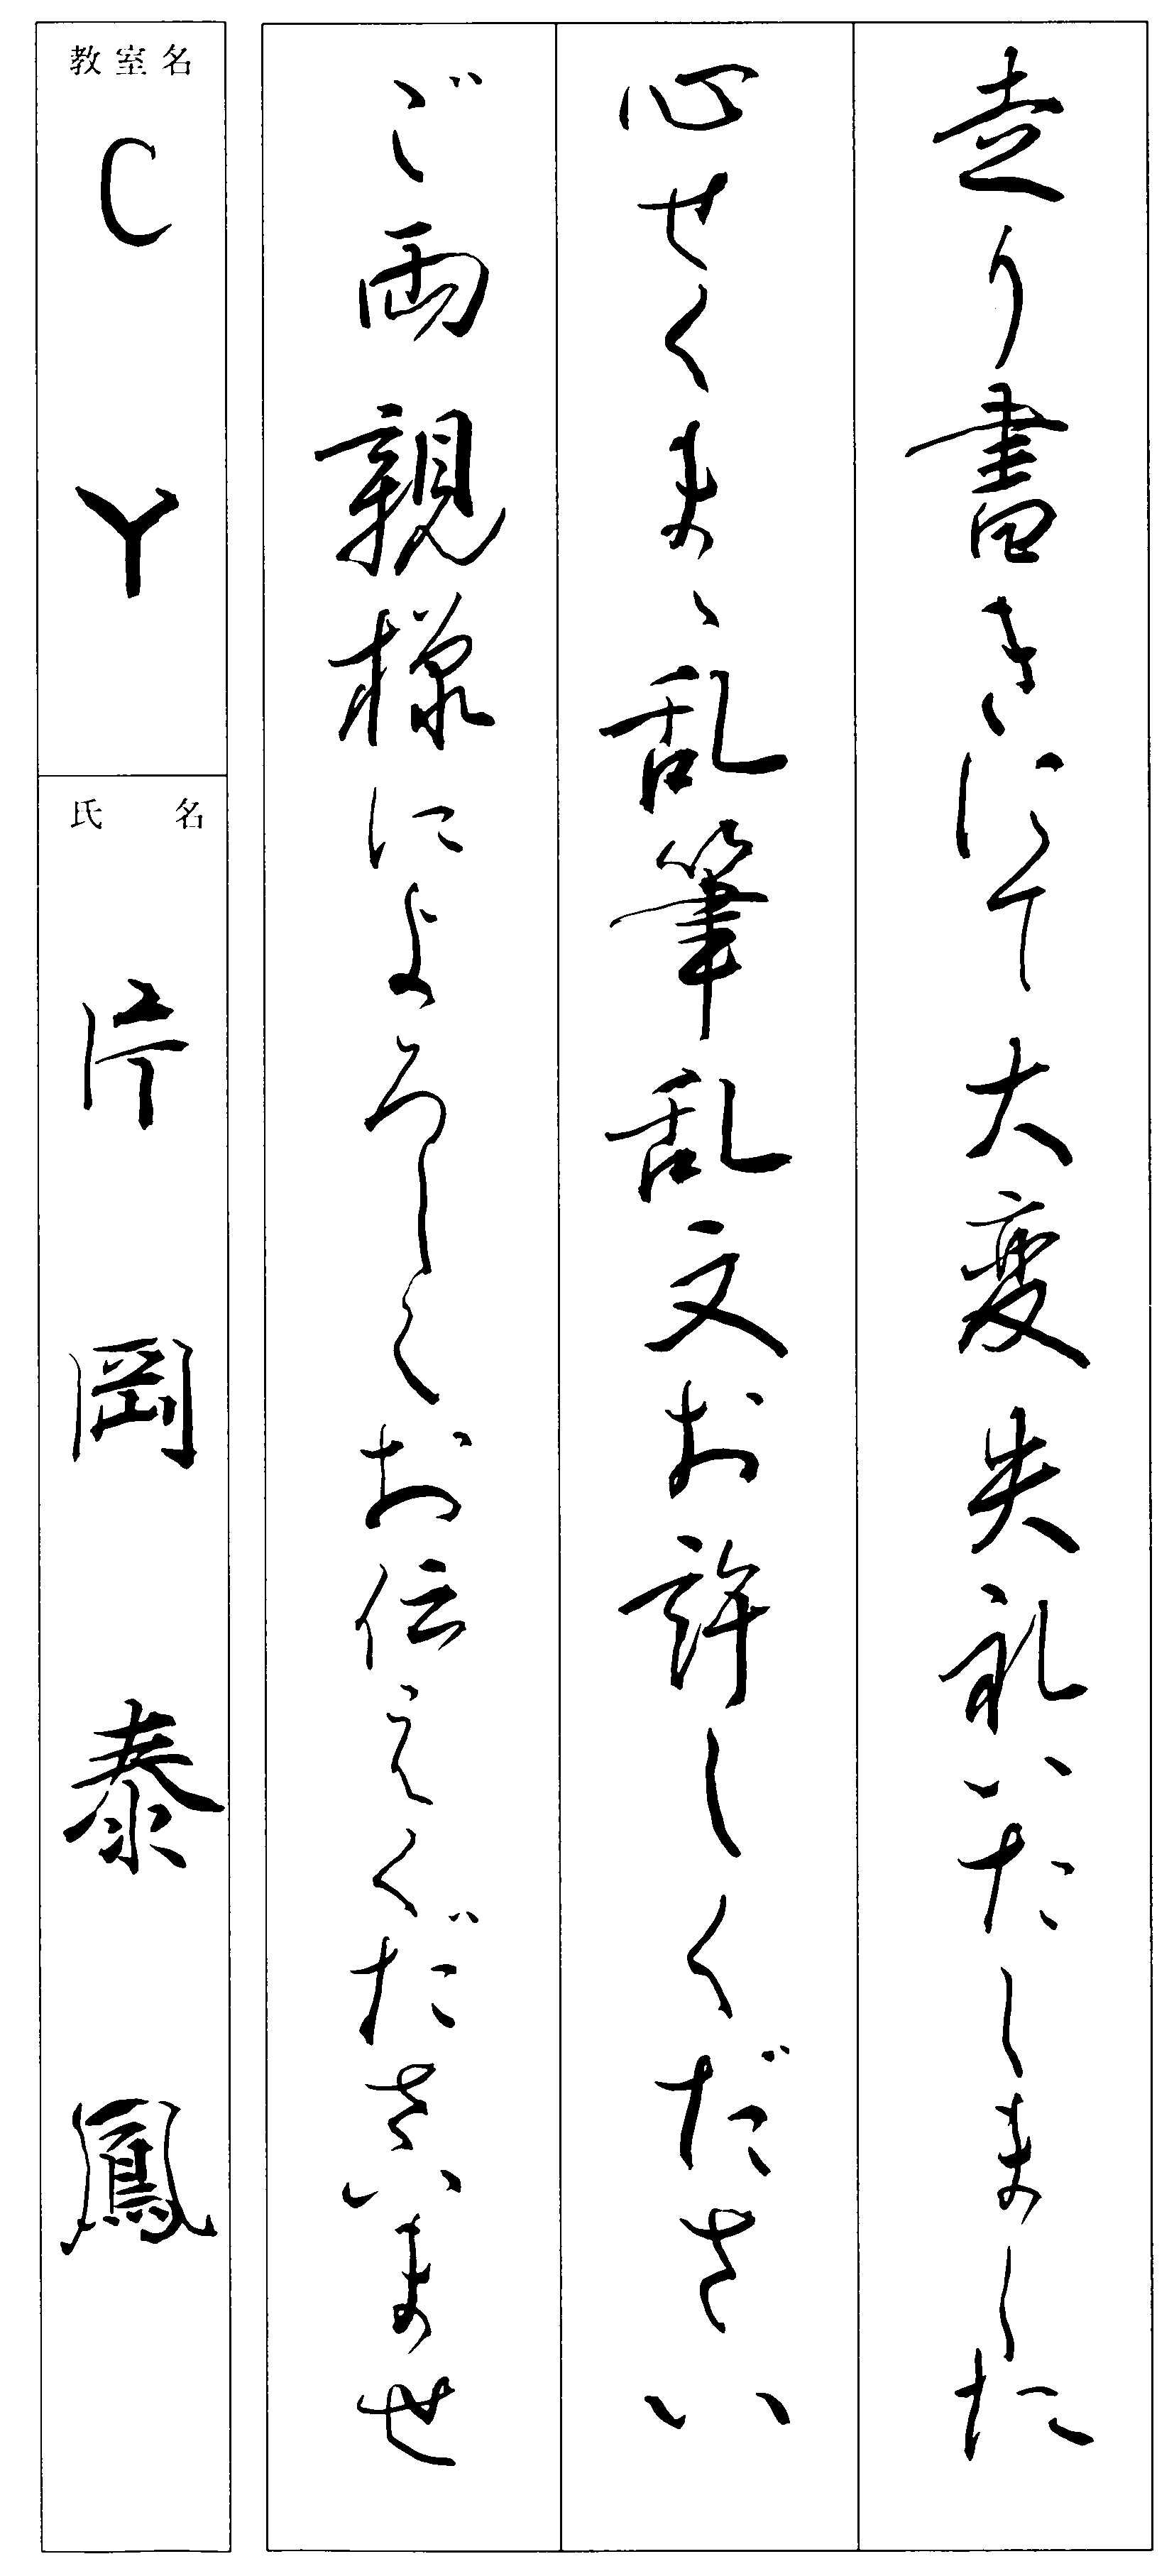 走り書きにて大変失礼いたしました
心せくまゝ乱筆乱文お許しください
ご両親様によろしくお伝えくださいませ
教室名
CY
氏名
片岡泰鳳